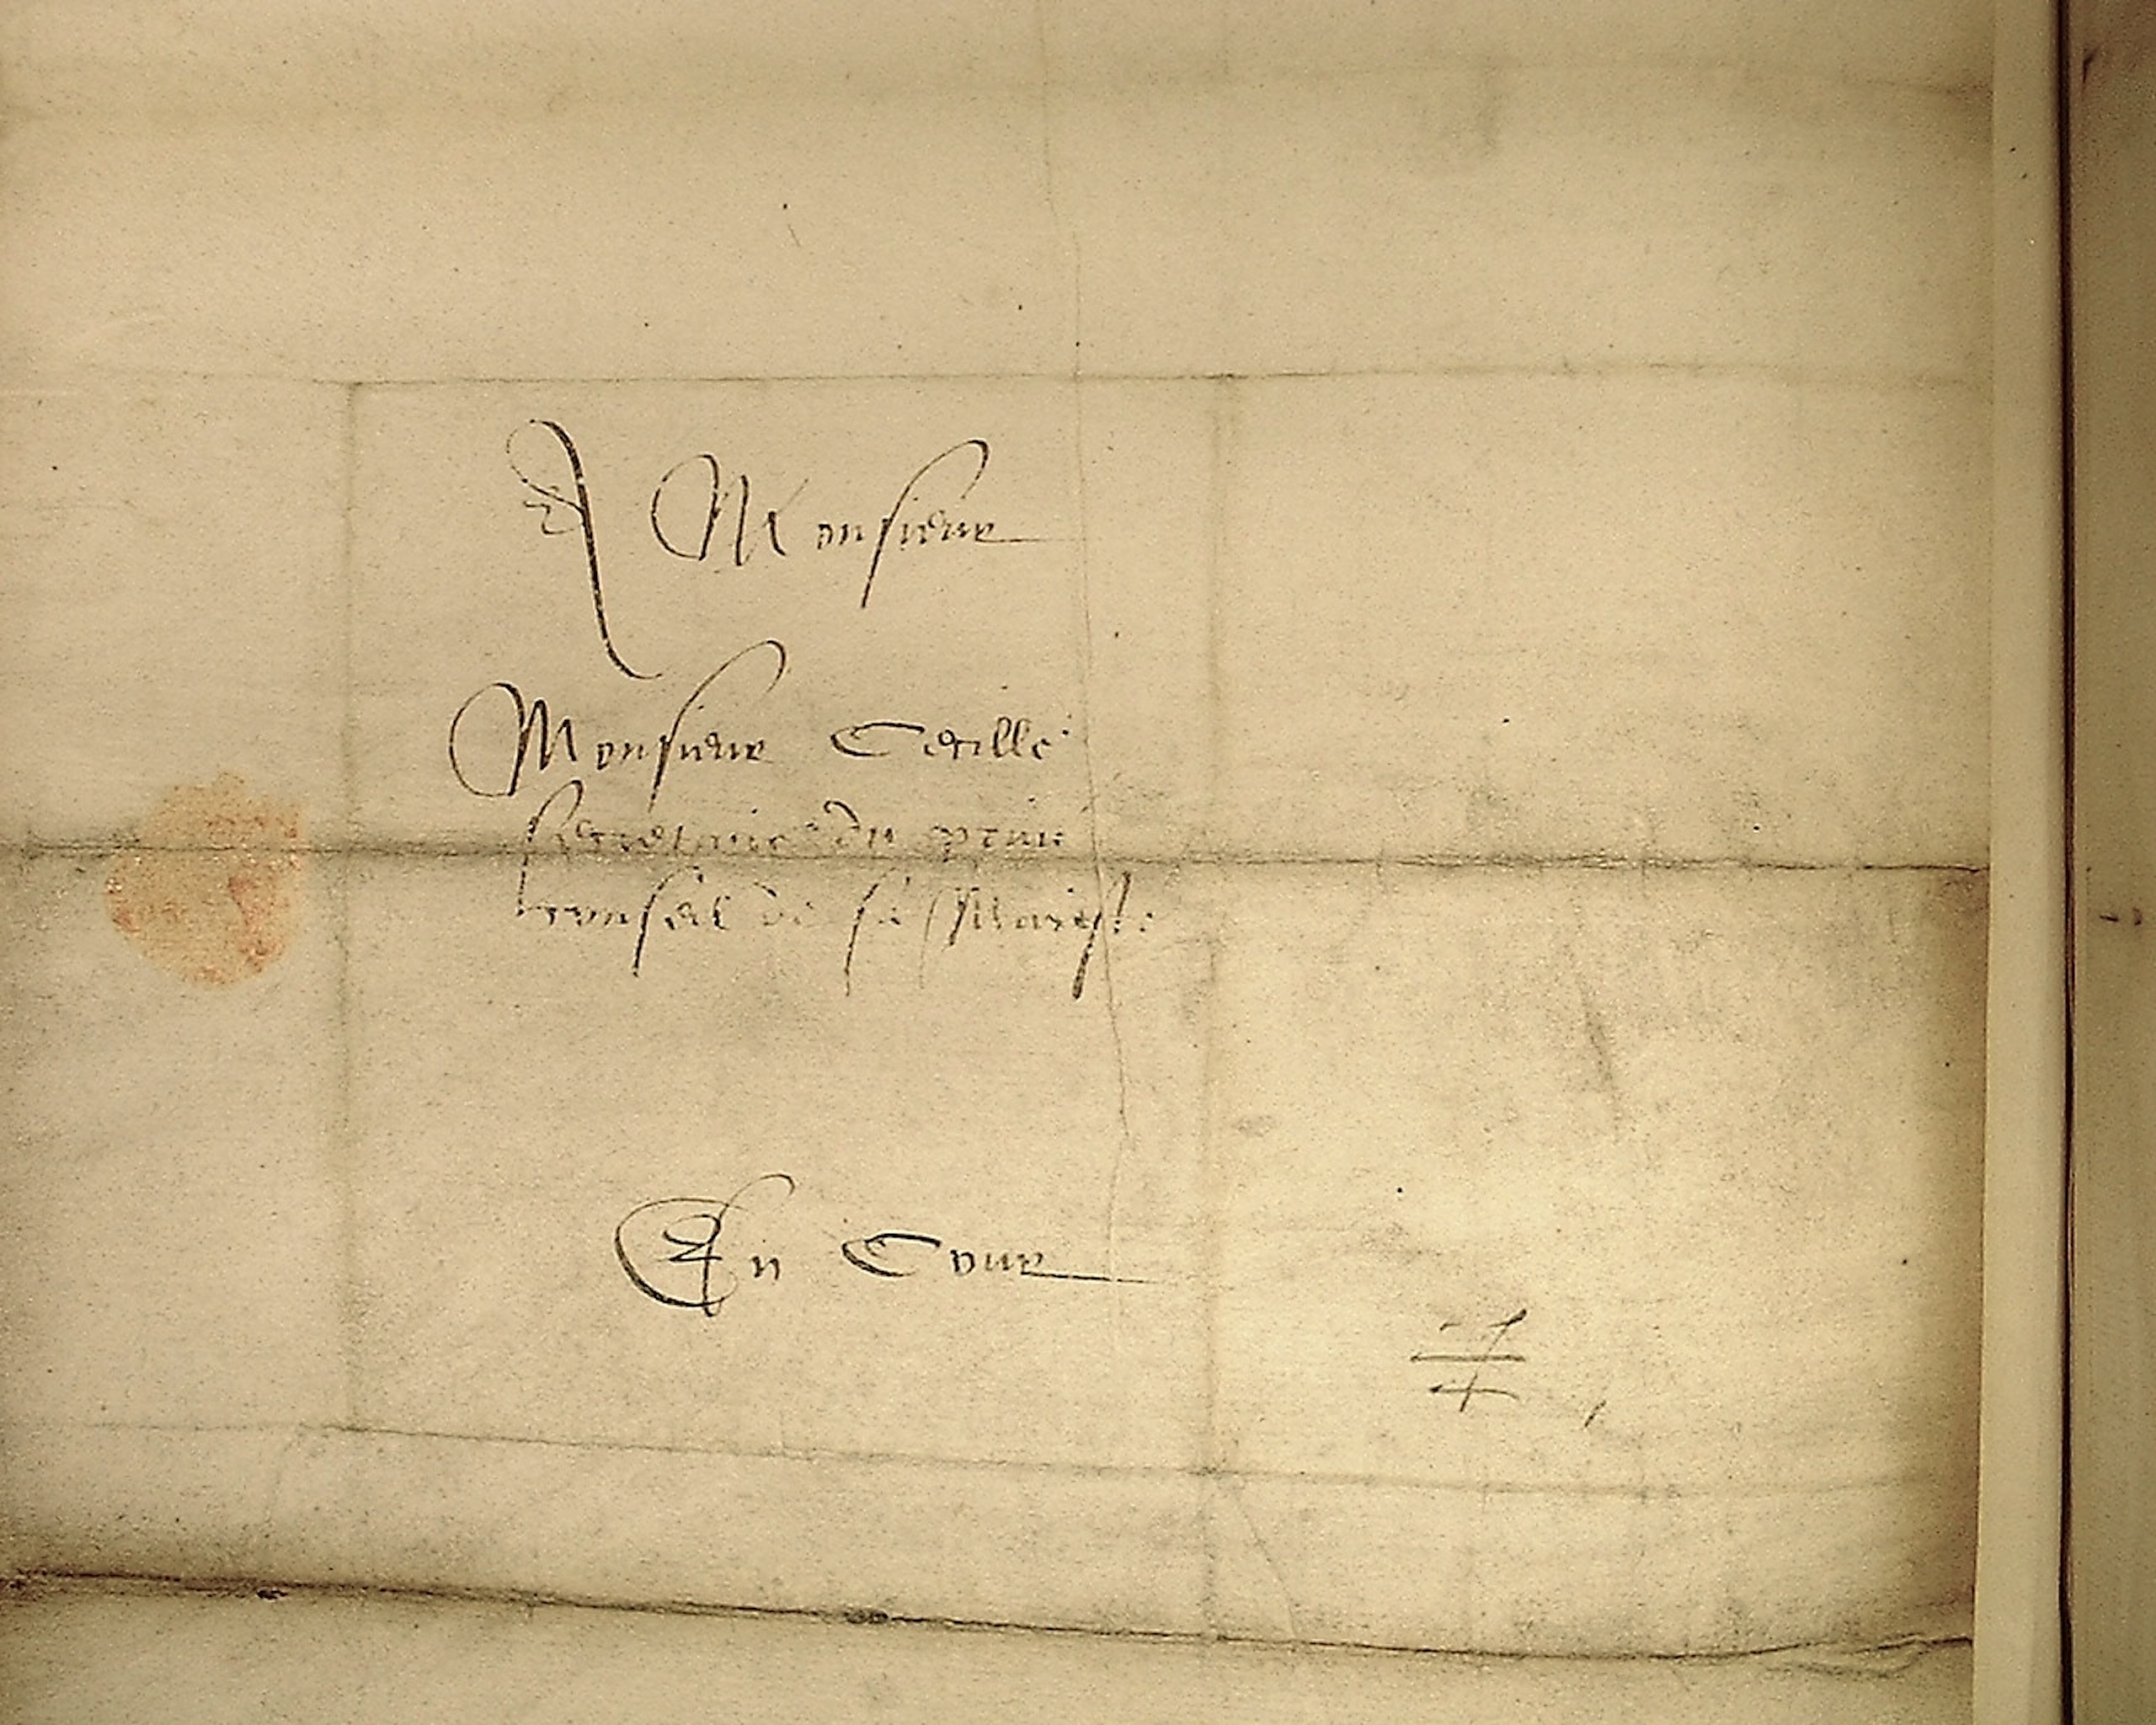 A Monsieur
Monsieur Cecille
secretaire du priue
conseil de sa Maieste
En Cour